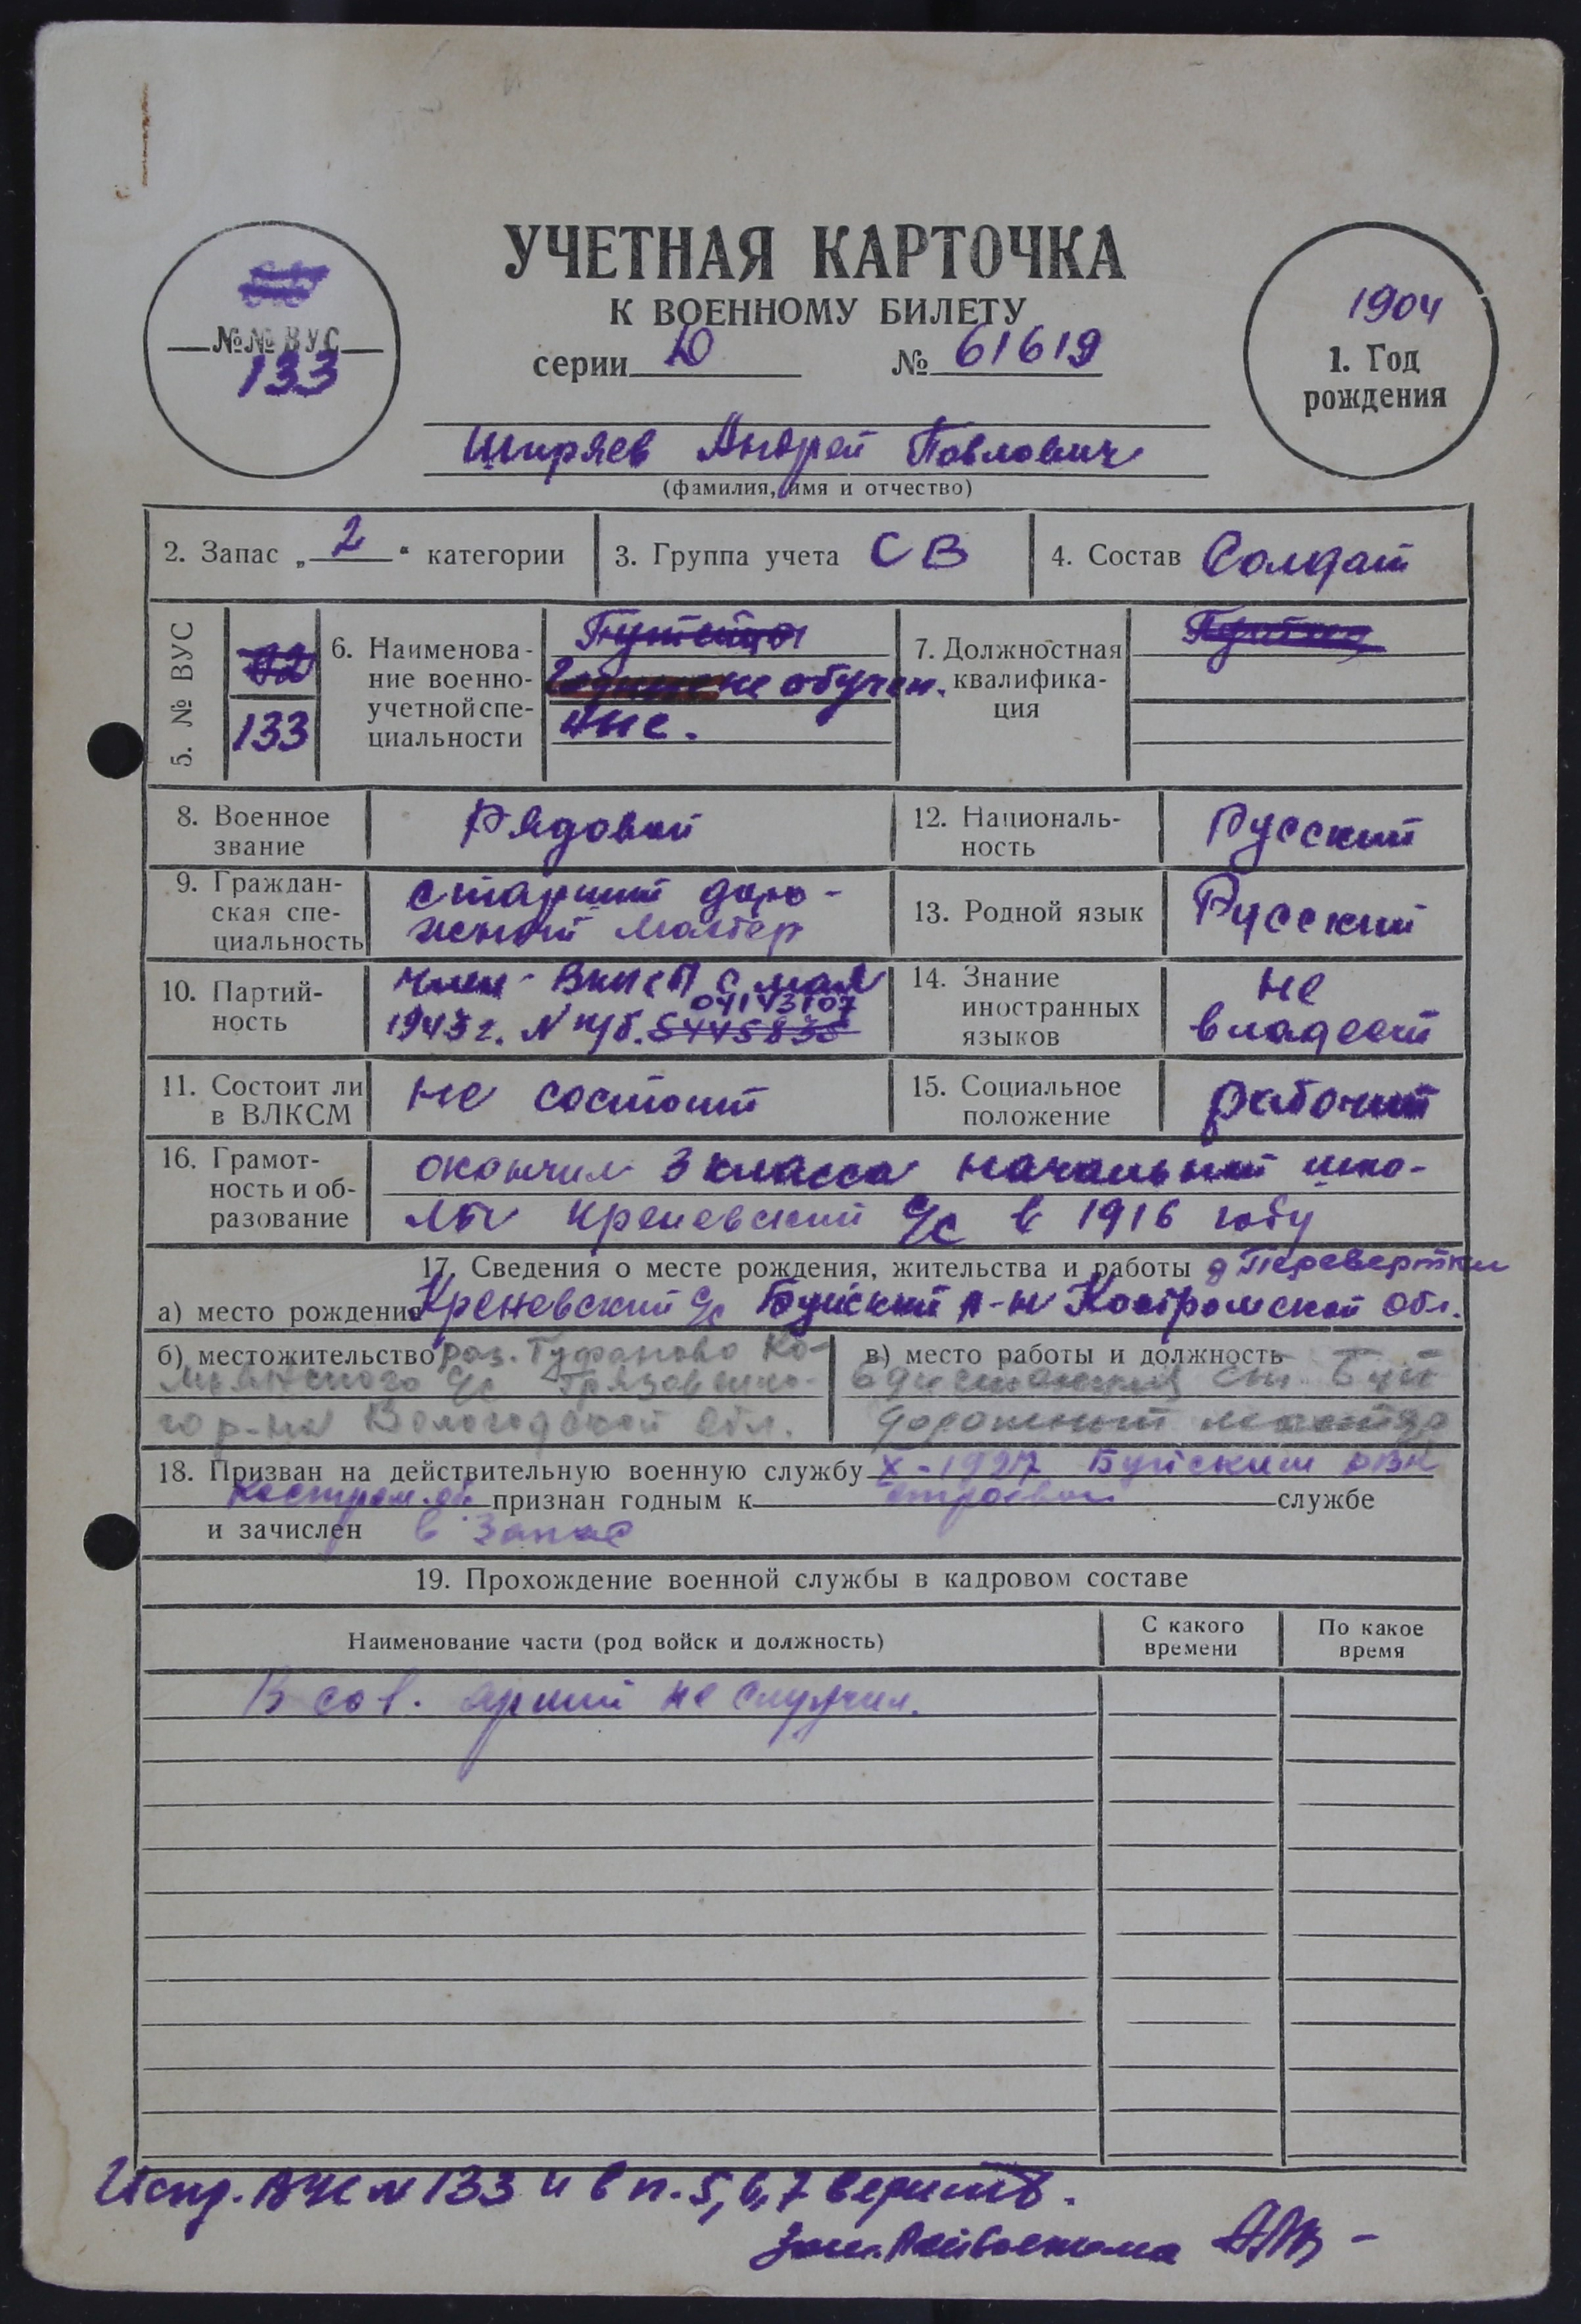 УЧЕТНАЯ КАРТОЧКА
К ВОЕННОМУ БИЛЕТУ
серии Ю № 61619
№№ ВУС
133
1904
1. Год
рождения
Ширяев Андрей Павлович
(фамилия, имя и отчество)
2. Запас „ 2 “ категории
3. Группа учета СВ
4. Состав Солдат
5. № ВУС
133
6. Наименова-
ние военно-
учетной спе-
циальности
не обучен.
ные.
7. Должностная
квалифика-
ция
8. Военное
звание
Рядовой
12. Националь-
ность
Русский
9. Граждан-
ская спе-
циальность
старший доро-
жный мастер
13. Родной язык
Русский
10. Партий-
ность
член ВКП(б) с мая
04143107
1943 г. N п/б. 5445838
14. Знание
иностранных
языков
не
владеет
11. Состоит ли
в ВЛКСМ
не состоит
15. Социальное
положение
рабочий
16. Грамот-
ность и об-
разование
окончил 3 класса начальный шко-
лы Креневский с/с в 1916 году
17. Сведения о месте рождения, жительства и работы д Перевертки
а) место рождения Креневский с/с Буйский р-н Костромской обл.
б) местожительство раз. Туфаново Ко-
с/с Грязовецко-
го р-на Вологодской обл.
в) место работы и должность
дистанция ст Буй
дорожный мастер
18. Призван на действительную военную службу X-1927 Буйским РВК
Костром. об. признан годным к строевой службе
и зачислен в запас
19. Прохождение военной службы в кадровом составе
Наименование части (род войск и должность)
С какого
времени
По какое
время
В сов. армий не служил.
Испр. ВУС N 133 и в п. 5, 6, 7 верить.
Зам. Райвоенкома